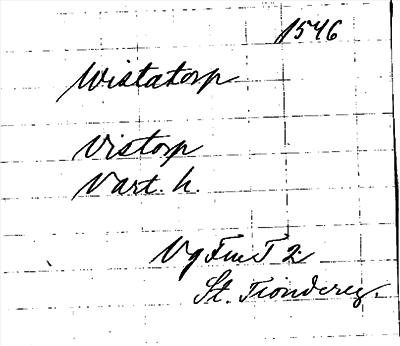 1546
Wistatorp
Vistorp
Vart. h.
Vg Fur T 2
St. Tiondereg.